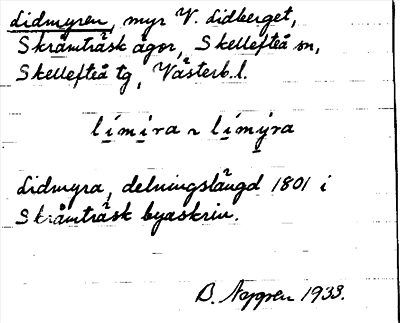 Lidmyren, myr V. Lidberget,
Skråmträsk ägor, Skellefteå sn,
Skellefteå tg, Västerb.l.
lími̱ra ~ límy̱ra
Lidmyra, delningslängd 1801 i
Skråmträsk byaskrin.
B. 1933.